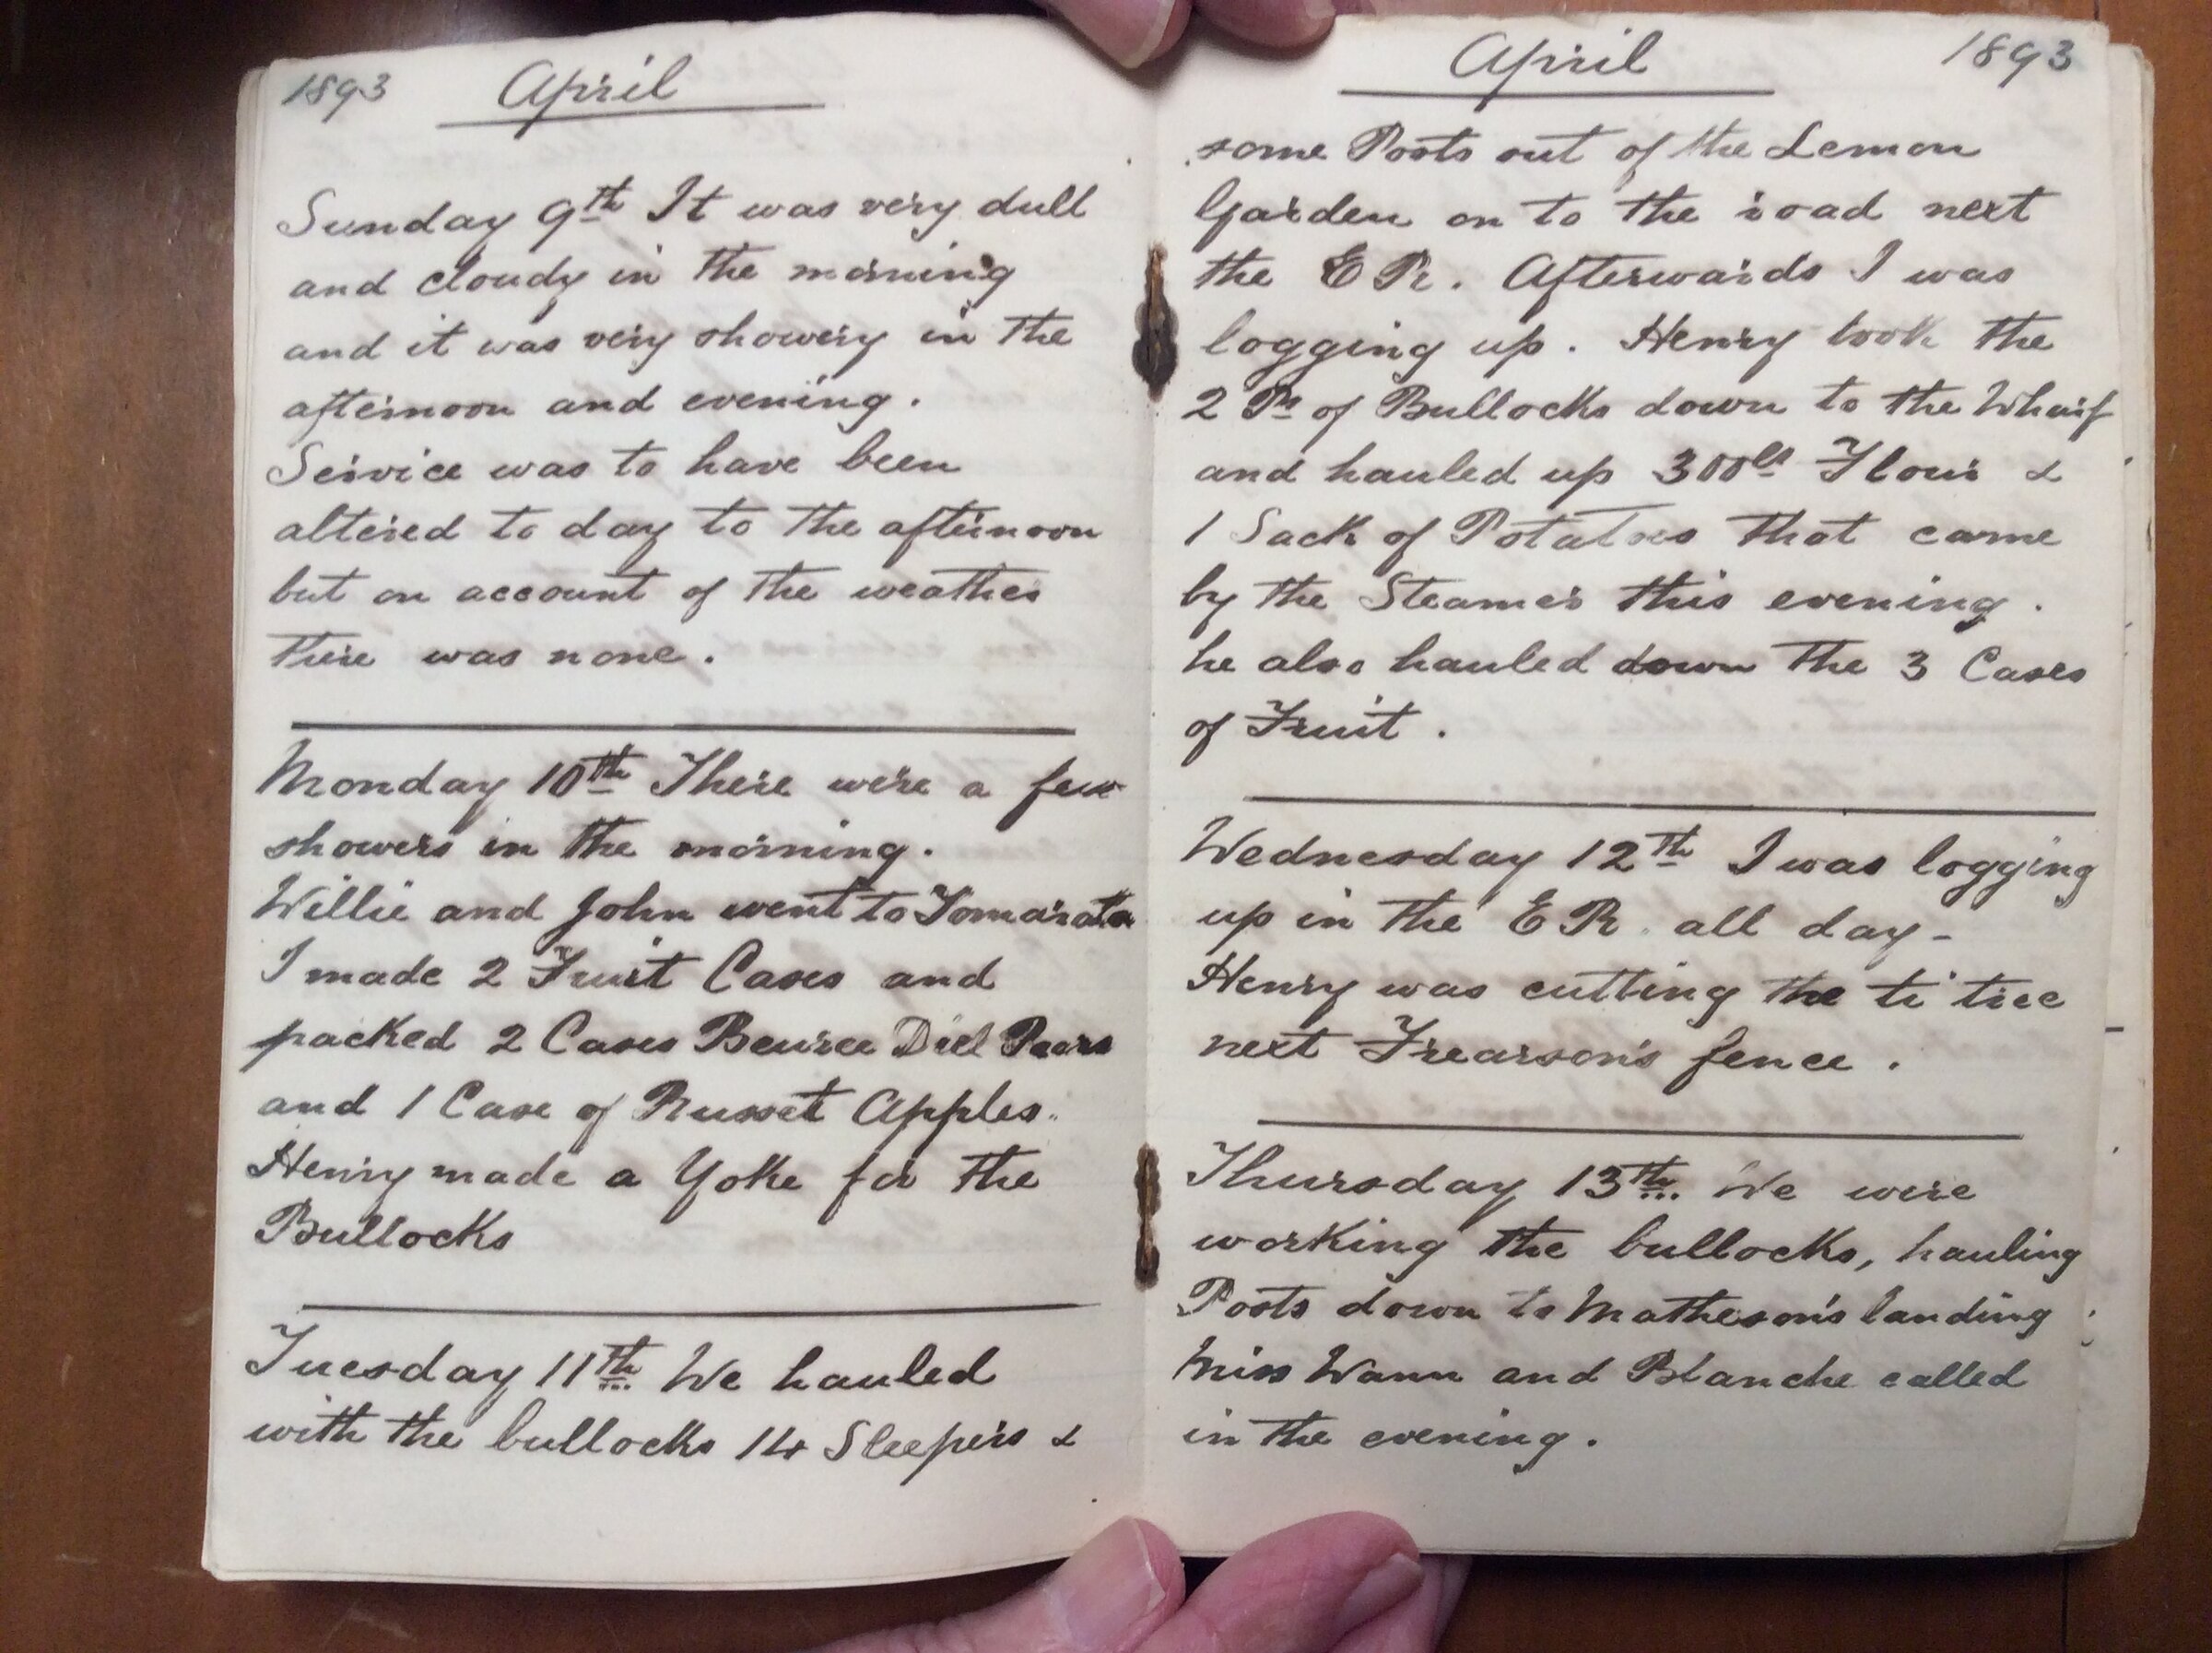 1893 April
Sunday 9th It was very dull
and cloudy in the morning
and it was very showery in the
afternoon and evening.
Service was to have been
altered to day to the afternoon
but on account of the weather
there was none.
Monday 10th There were a few
showers in the morning.
Willie and John went to Tomarata
I made 2 Fruit Cases and
packed 2 Cases Beuree Diel Pears
and 1 Case of Russet Apples.
Henry made a Yoke for the
Bullocks
Tuesday 11th We hauled
with the bullocks 14 Sleepers &
April 1893
some Posts out of the Lemon
Garden on to the road next
the E R. Afterwards I was
logging up. Henry took the
2 Pr of Bullocks down to the Wharf
and hauled up 300lb Flour &
1 Sack of Potatoes that came
by the Steamer this evening.
he also hauled down the 3 Cases
of Fruit.
Wednesday 12th I was logging
up in the E R. all day-
Henry was cutting the ti tree
next Frearson's fence.
Thursday 13th. We were
working the bullocks, hauling
Posts down to Matheson's landing
Miss Wann and Blanche called
in the evening.